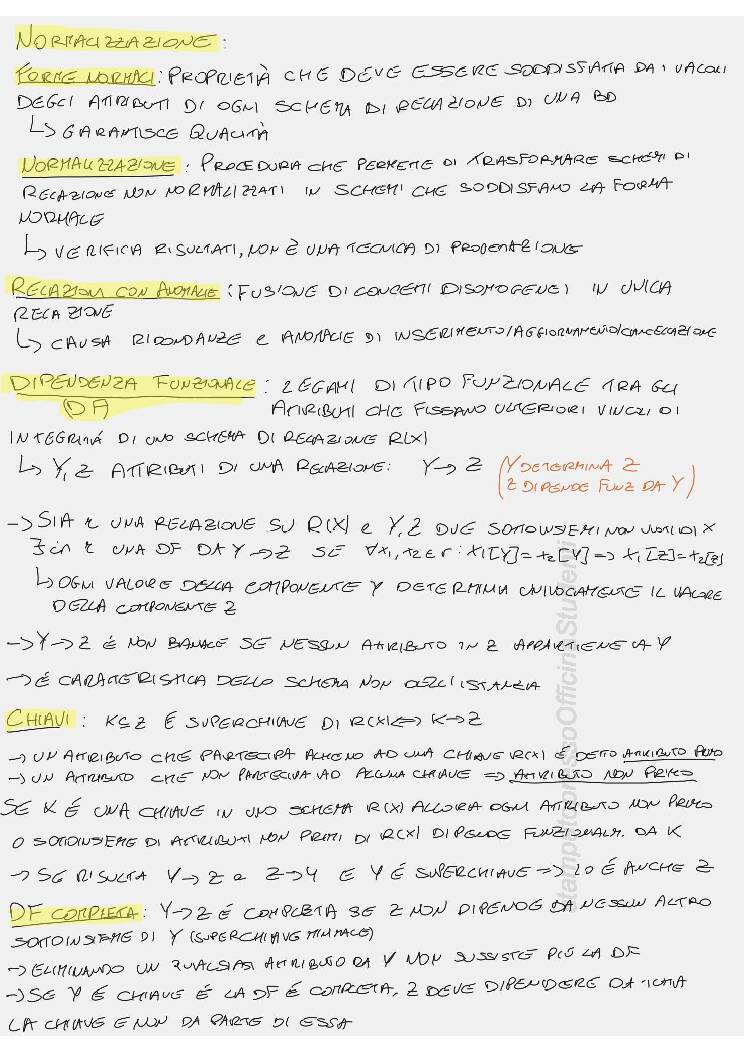 NORMALIZZAZIONE:
FORME NORMALI: PROPRIETÀ CHE DEVE ESSERE SODDISFATTA DAI VALORI
DEGLI ATTRIBUTI DI OGNI SCHEMA DI RELAZIONE DI UNA BD
↳ GARANTISCE QUALITÀ
NORMALIZZAZIONE: PROCEDURA CHE PERMETTE DI TRASFORMARE SCHEMI DI
RELAZIONE NON NORMALIZZATI IN SCHEMI CHE SODDISFANO LA FORMA
NORMALE
↳ VERIFICA RISULTATI, NON È UNA TECNICA DI PROGETTAZIONE
RELAZIONI CON ANOMALIE: (FUSIONE DI CONCETTI DISOMOGENEI IN UNICA
RELAZIONE
↳ CAUSA RIDONDANZE e ANOMALIE DI INSERIMENTO/AGGIORNAMENTO/CANCELLAZIONE
DIPENDENZA FUNZIONALE: LEGAMI DI TIPO FUNZIONALE TRA GLI
(DF) ATTRIBUTI CHE FISSANO ULTERIORI VINCOLI DI
INTEGRITÁ DI UNO SCHEMA DI RELAZIONE R(X)
↳ Y, Z ATTRIBUTI DI UNA RELAZIONE: Y → Z (Y DETERMINA Z
Z DIPENDE FUNZ DA Y)
→ SIA r UNA RELAZIONE SU R(X) e Y, Z DUE SOTTOINSIEMI NON VUOTI DI X
∃ in r UNA DF DA Y → Z SE ∀x₁, x₂ ∈ r: x₁[Y] = x₂[Y] => x₁[Z] = x₂[Z]
↳ OGNI VALORE DELLA COMPONENTE Y DETERMINA UNIVOCAMENTE IL VALORE
DELLA COMPONENTE Z
→ Y → Z É NON BANALE SE NESSUN ATTRIBUTO IN Z APPARTIENE A Y
→ É CARATTERISTICA DELLO SCHEMA NON DELL'ISTANZA
CHIAVI: K ⊆ Z É SUPERCHIAVE DI R(X) <=> K → Z
→ UN ATTRIBUTO CHE PARTECIPA ALMENO AD UNA CHIAVE R(X) É DETTO ATTRIBUTO PRIMO
→ UN ATTRIBUTO CHE NON PARTECIPA AD ALCUNA CHIAVE => ATTRIBUTO NON PRIMO
SE K É UNA CHIAVE IN UNO SCHEMA R(X) ALLORA OGNI ATTRIBUTO NON PRIMO
O SOTTOINSIEME DI ATTRIBUTI NON PRIMI DI R(X) DIPENDE FUNZIONALM. DA K
→ SE RISULTA Y → Z e Z → Y E Y É SUPERCHIAVE => LO É ANCHE Z
DF COMPLETA: Y → Z É COMPLETA SE Z NON DIPENDE DA NESSUN ALTRO
SOTTOINSIEME DI Y (SUPERCHIAVE MINIMALE)
→ ELIMINANDO UN QUALSIASI ATTRIBUTO DA Y NON SUSSISTE PIÙ LA DF
→ SE Y É CHIAVE É LA DF É COMPLETA, Z DEVE DIPENDERE DA TUTTA
LA CHIAVE E NON DA PARTE DI ESSA